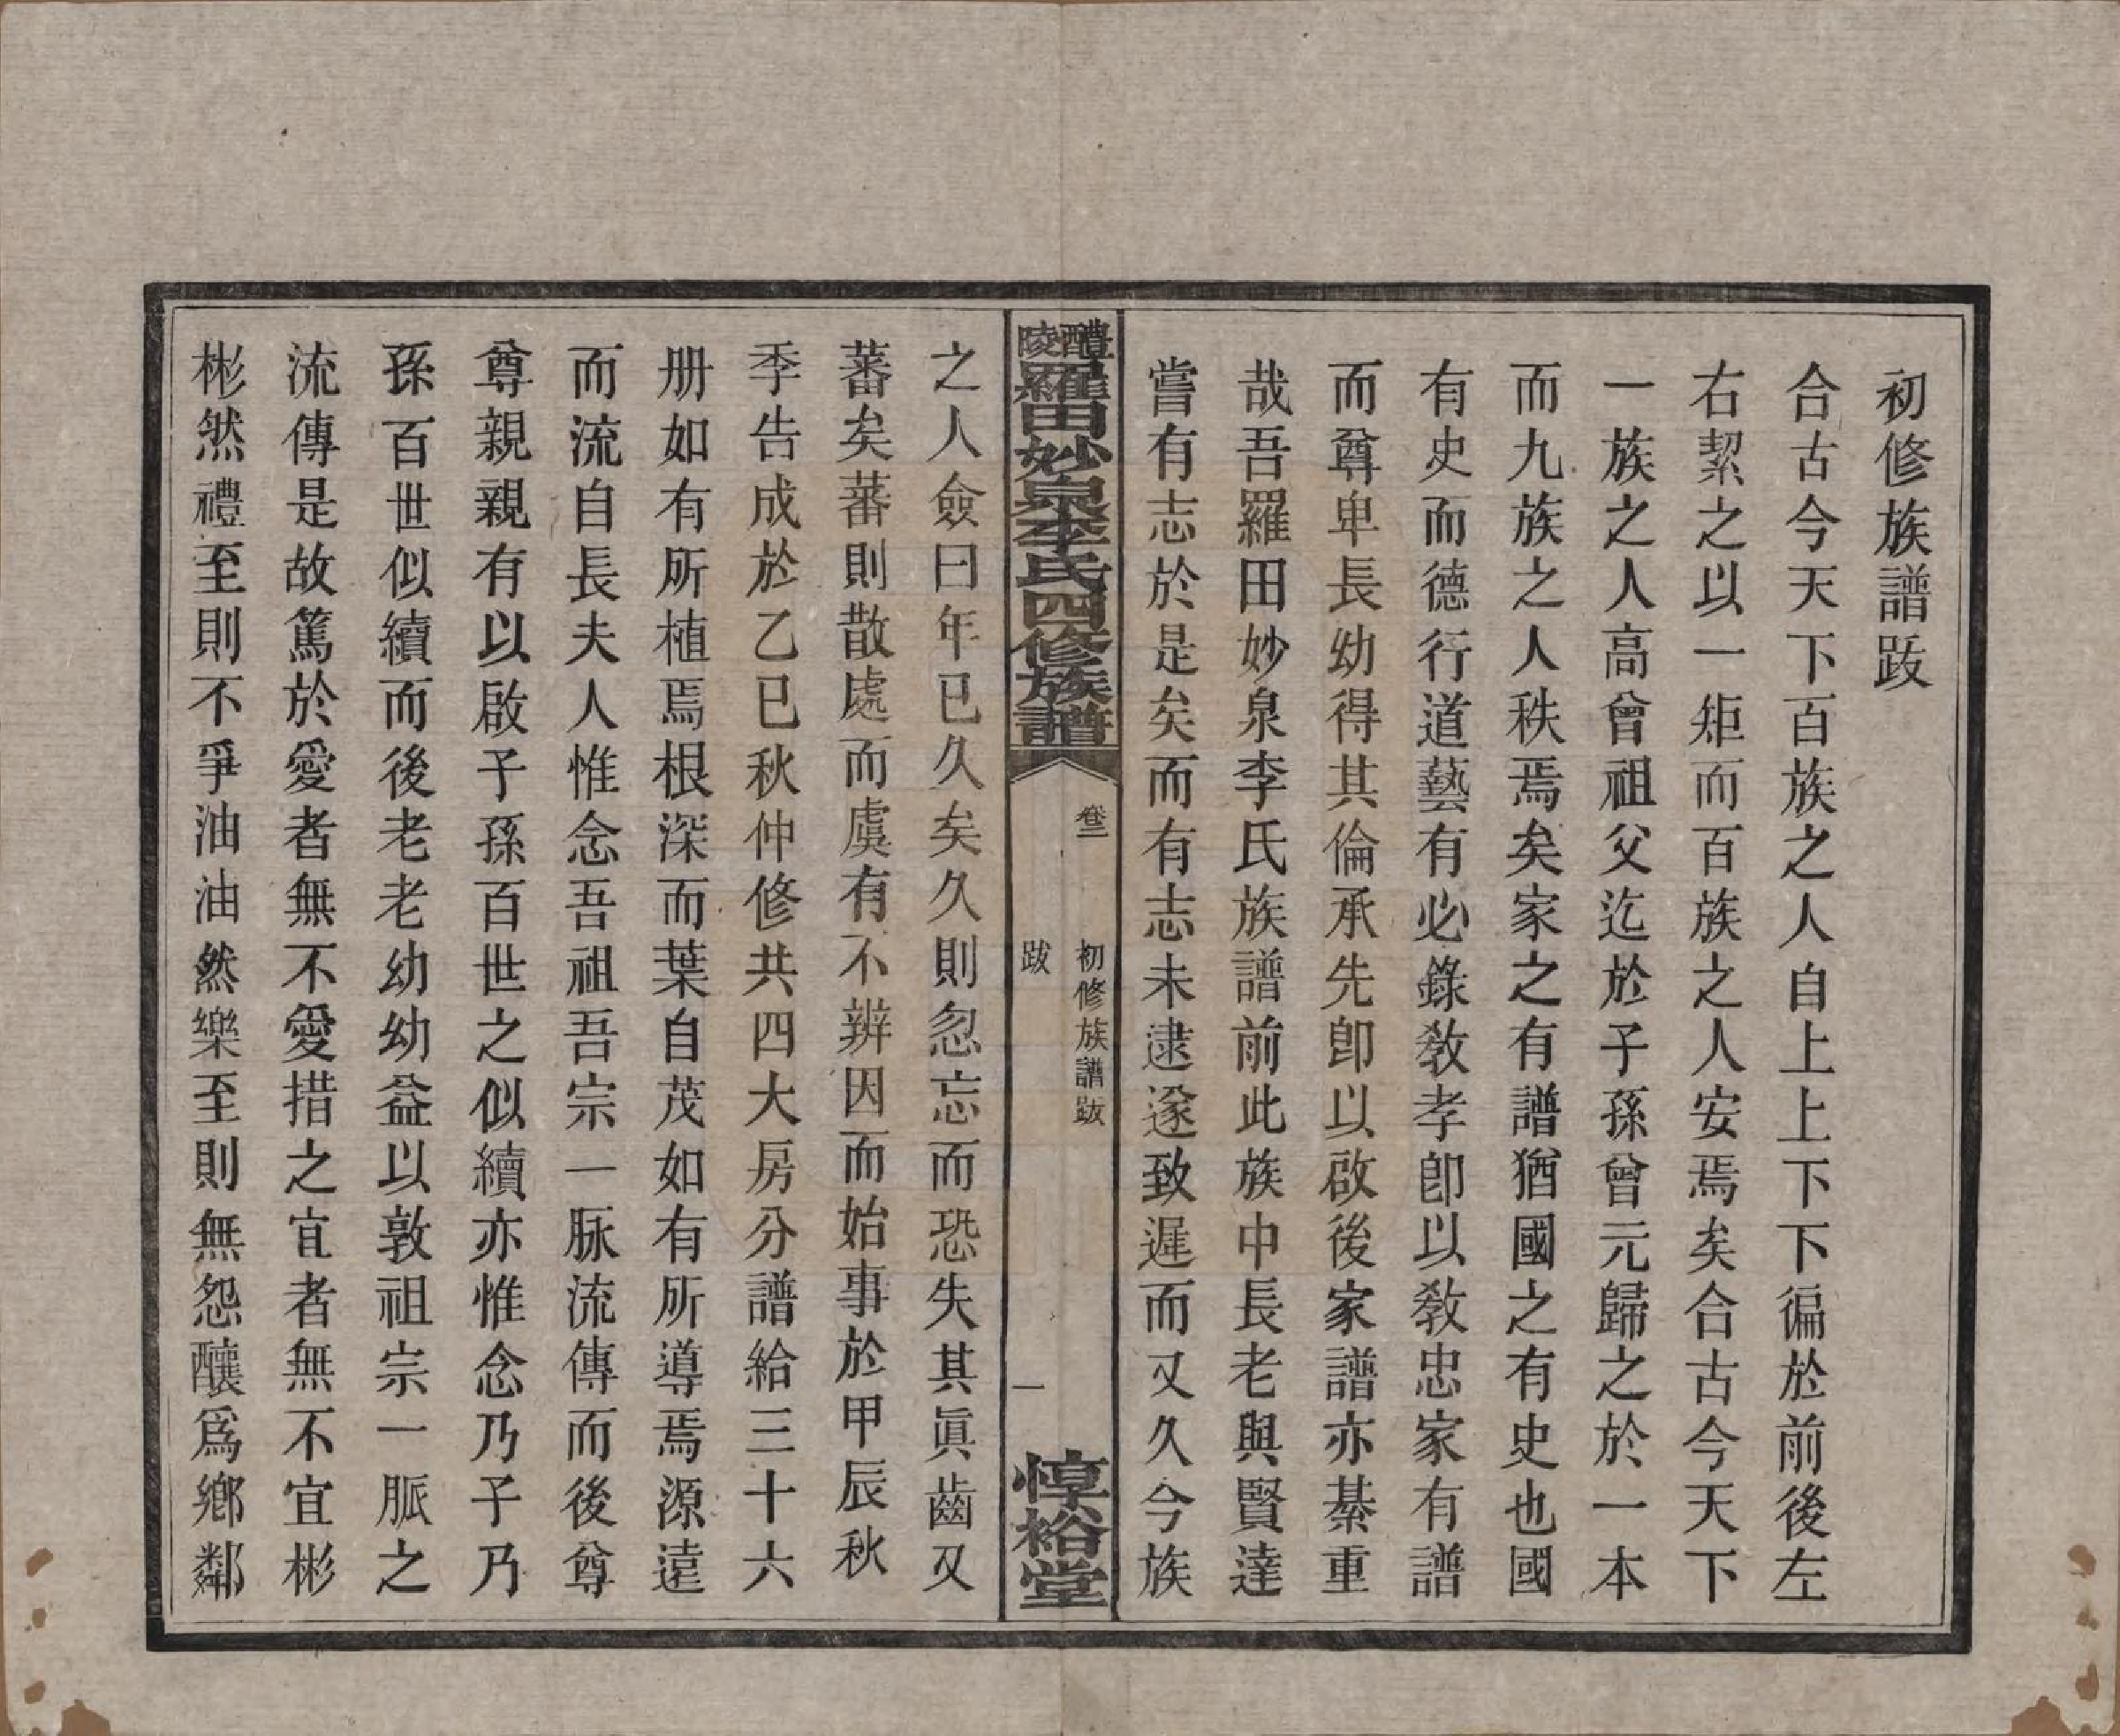 初修族譜跋
合古今天下百族之人自上上下下徧於前後左
右絜之以一矩而百族之人安焉矣合古今天下
一族之人高曾祖父迄於子孫曾元歸之於一本
而九族之人秩焉矣家之有譜猶國之有史也國
有史而德行道藝有必錄敎孝卽以敎忠家有譜
而尊卑長幼得其倫承先卽以啟後家譜亦綦重
哉吾羅田妙泉李氏族譜前此族中長老與賢達
嘗有志於是矣而有志未逮遂致遲而又久今族
醴陵羅田妙泉李氏四修族譜
卷三
初修族譜跋
跋
一
惇裕堂
之人僉曰年已久矣久則忽忘而恐失其眞齒又
蕃矣蕃則散處而虞有不辨因而始事於甲辰秋
季告成於乙巳秋仲修共四大房分譜給三十六
册如有所植焉根深而葉自茂如有所導焉源遠
而流自長夫人惟念吾祖吾宗一脉流傳而後尊
尊親親有以啟子孫百世之似續亦惟念乃子乃
孫百世似續而後老老幼幼益以敦祖宗一脈之
流傳是故篤於愛者無不愛措之宜者無不宜彬
彬然禮至則不爭油油然樂至則無怨釀爲鄕鄰